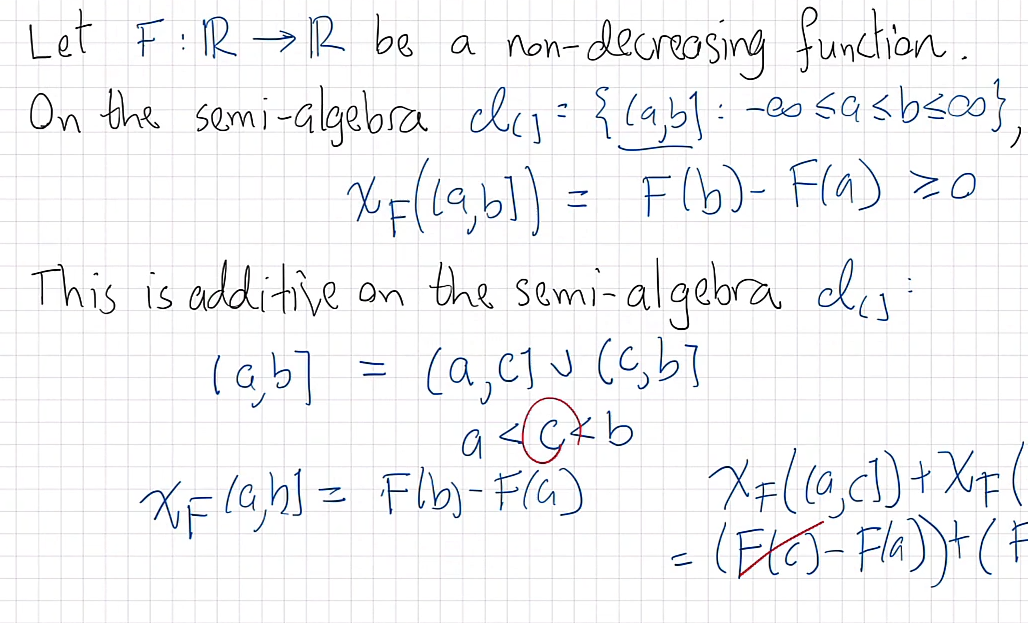 Let F : ℝ → ℝ be a non-decreasing function.
On the semi-algebra 𝒜(] = {(a,b] : -∞ ≤ a ≤ b ≤ ∞},
χ_F((a,b]) = F(b) - F(a) ≥ 0
This is additive on the semi-algebra 𝒜(] :
(a,b] = (a,c] ∪ (c,b]
a < c < b
χ_F(a,b] = F(b) - F(a) χ_F((a,c]) + χ_F(
= (F(c) - F(a)) + (F